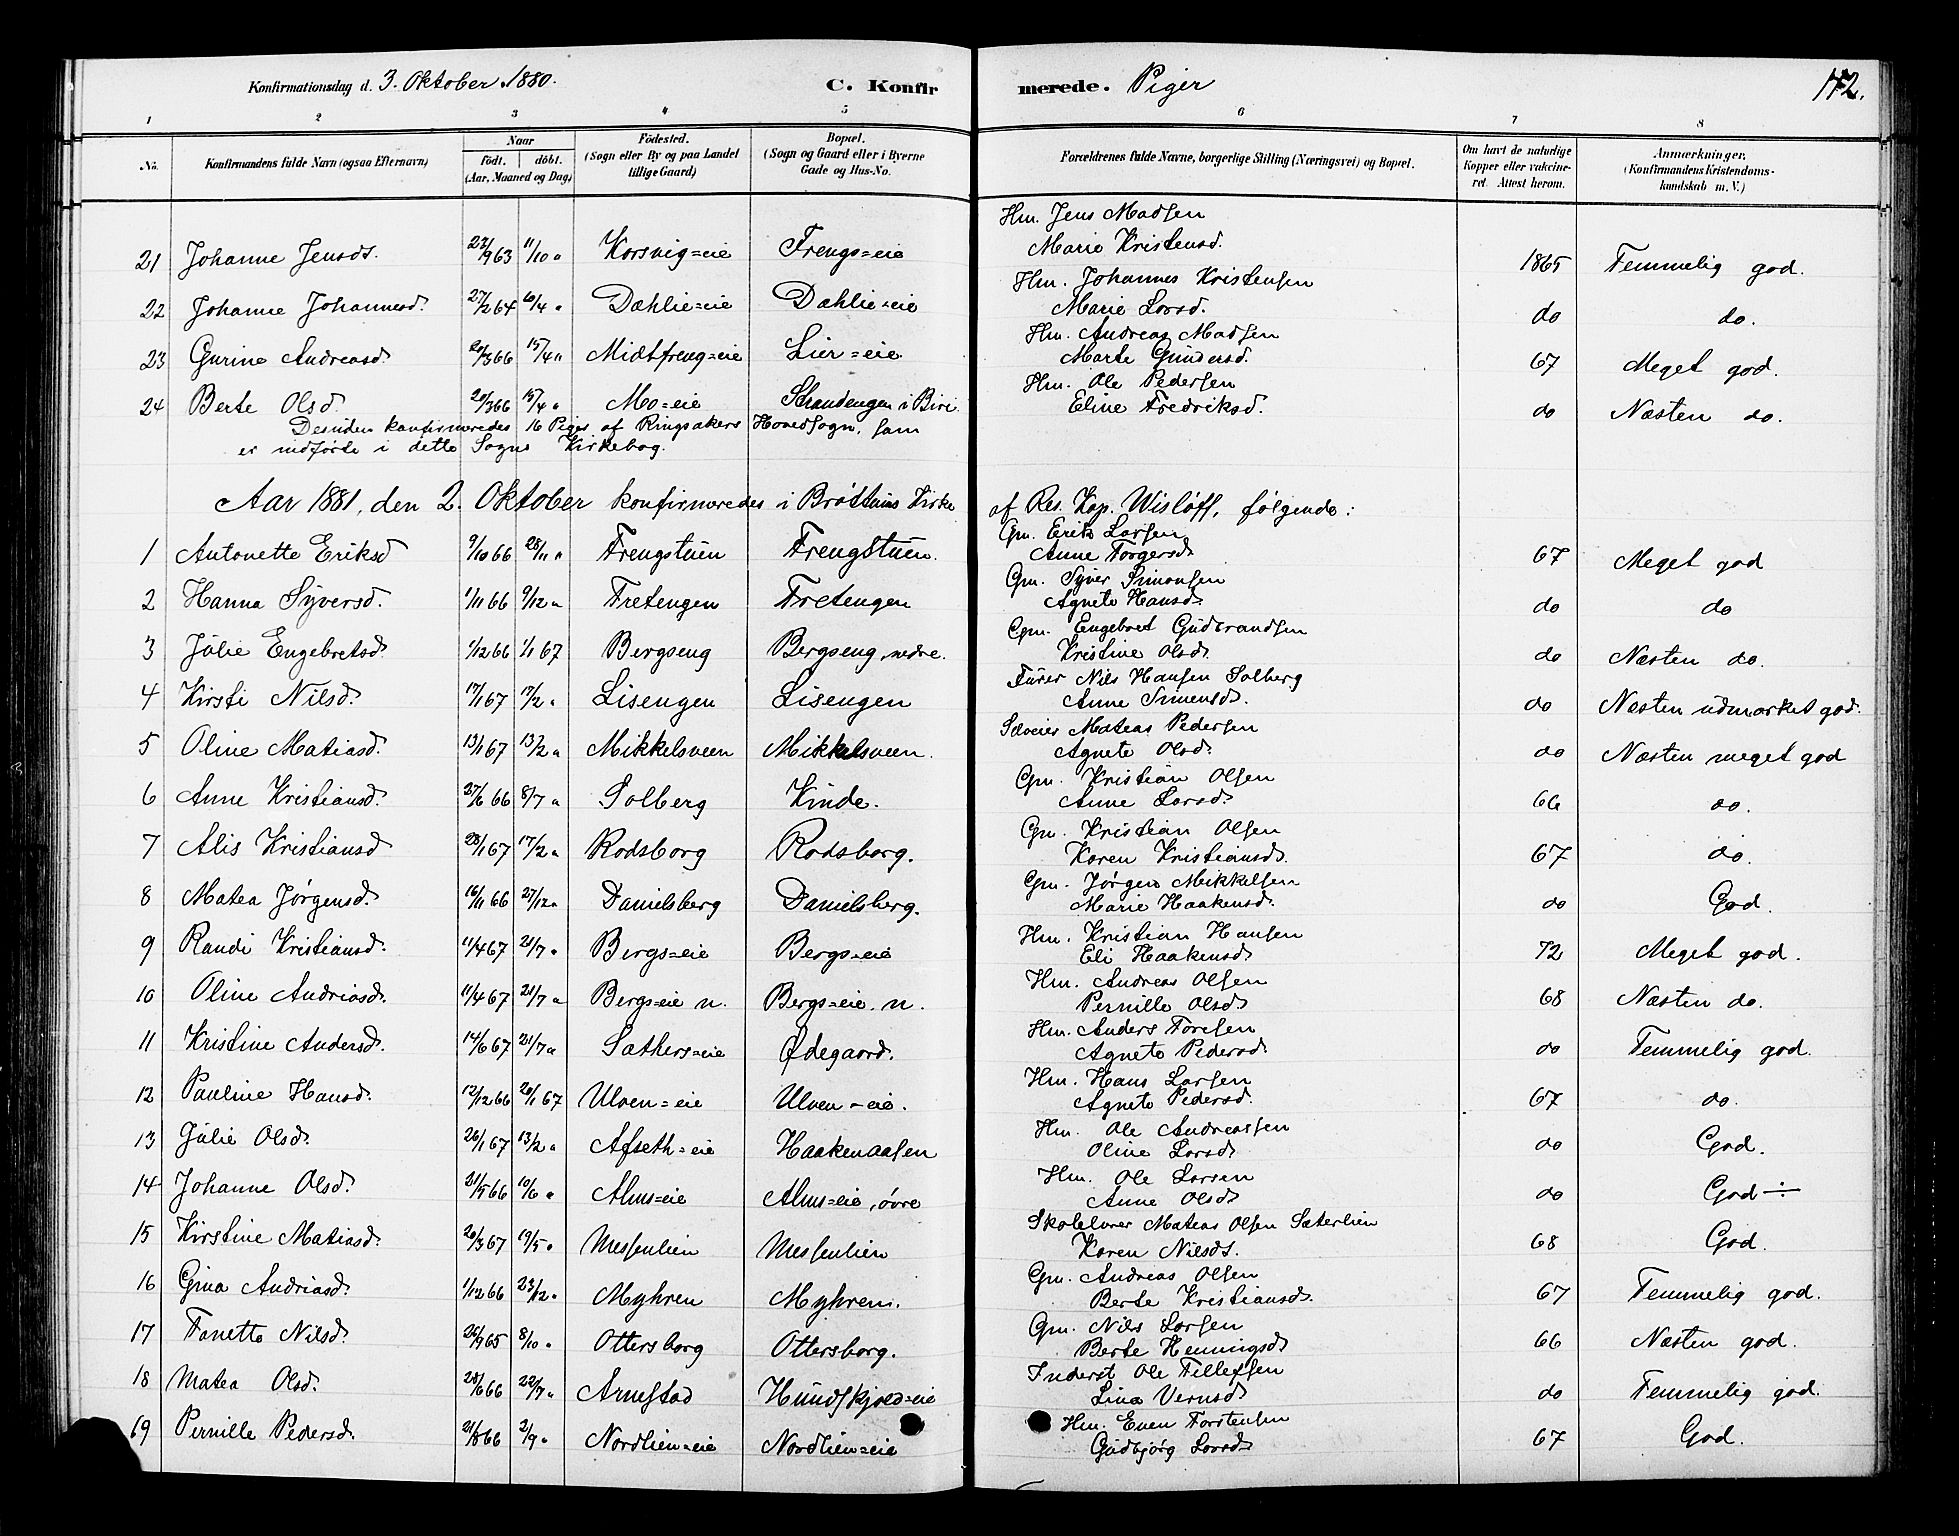 Konfirmationsdag d. 3. Oktober 1880. C. Konfirmerede. Piger 172.
1 2 3 4 5 6 7 8
No. Konfirmandens fulde Navn (ogsaa Efternavn) Naar født. døbt. (Aar, Maaned og Dag) Fødested. (Sogn eller By og paa Landet tillige Gaard) Bopæl. (Sogn og Gaard eller i Byerne Gade og Hus-No. Forældrenes fulde Navne, borgerlige Stilling (Næringsvei) og Bopæl. Om havt de naturlige Kopper eller vakcineret. Attest herom. Anmærkninger. (Konfirmandens Kristendomskundskab m. V.)
Hm. Jens Madsen
21 Johanne Jensd. 22/9 63 11/10 " Korsvig=eie Frengs=eie Marie Kristensd. 1865 Temmelig god.
Hm. Johannes Kristensen
22 Johanne Johannesd. 27/2 64 10/4 " Dæhlie=eie Dæhlie=eie Marie Larsd. do do.
Hm. Andreas Madsen
23 Gurine Andreasd. 20/3 66 15/4 " Midtfreng=eie Lier=eie Marte Gundersd. 67 Meget god.
Hm. Ole Pedersen
24 Berte Olsd. 20/3 66 15/4 " Mo=eie Strandengen i Biri Eline Fredriksd. do Næsten do.
Desuden konfirmeredes 16 Piger af Ringsakers Hovedsogn, som
er indførte i dette Sogns Kirkebog.
Aar 1881, den 2. Oktober konfirmeredes i Brøttums Kirke af Res. Kap. Wisløff, følgende:
Gm. Erik Larsen
1 Antonette Eriksd 9/10 66 28/11 " Frengstuen Frengstuen. Anne Torgersd. 67 Meget god
Gm. Syver Simonsen
2 Hanna Syversd. 1/11 66 9/12 " Fretengen Fretengen Agnete Hansd. do do
Gm. Engebret Gudbrandsen
3 Julie Engebretsd. 1/12 66 1/1 67 Bergseng Bergseng, nedre. Kristine Olsd. do Næsten do.
Furer Nils Hansen Solberg
4 Kirsti Nilsd. 17/1 67 17/2 " Lisengen Lisengen Anne Simensd. do Næsten udmærket god.
Selveier Mateas Pedersen
5 Oline Matiasd. 13/1 67 13/2 " Mikkelsveen Mikkelsveen. Agnete Olsd. do Næsten meget god
Gm. Kristian Olsen
6 Anne Kristiansd. 27/6 66 8/7 " Solberg Kinde. Anne Larsd. 66 do.
Gm. Kristian Olsen
7 Alis Kristiansd 28/1 67 17/2 " Rodsborg Rodsborg. Karen Kristiansd. 67 do.
Gm. Jørgen Mikkelsen
8 Matea Jørgensd. 16/11 66 27/12 " Danielsberg Danielsberg. Marie Haakensd. do God.
Hm. Kristian Hansen
9 Randi Kristiansd. 11/4 67 21/7 " Bergs=eie Bergs=eie Eli Haakensd 72 Meget god.
Hm. Andreas Olsen
10 Oline Andriasd. 11/4 67 21/7 " Bergs=eie n. Bergs=eie. n. Pernille Olsd 68 Næsten do.
Hm. Anders Toresen
11 Kristine Andersd. 14/6 67 21/7 " Sæthers=eie Ødegaard. Agnete Pedersd. do Temmelig god.
Hm. Hans Larsen
12 Pauline Hansd. 12/12 66 20/1 67 Ulven=eie Ulven-eie. Agnete Pedersd. 67 do.
Hm. Ole Andreassen
13 Julie Olsd. 26/1 67 13/2 " Afseth=eie Haakenaasen Oline Larsd. do God.
Hm. Ole Larsen
14 Johanne Olsd. 21/5 66 10/6 " Alms=eie Alms=eie, övre Anne Olsd do God ÷
Skolelærer Mateas Olsen Sæterlien
15 Kirstine Matiasd. 20/3 67 19/5 " Messenlien Messenlien Karen Nilsdt. 68 God.
Gm. Andreas Olsen
16 Gina Andriasd. 1/12 66 23/12 " Myhren Myhren. Berte Kristiansd. 67 Temmelig god.
Gm. Nils Larsen
17 Tonette Nilsd. 26/9 65 8/10 " Ottersborg Ottersborg. Berte Henningsd 66 Næsten god.
Inderst Ole Tillefsen
18 Matea Olsd. 25/6 66 22/7 " Arnestad Hundskjold=eie Lina Vernsd do Temmelig god.
Hm. Even Torstensen
69 Pernille Pedersd. 21/8 66 2/9 " Nordlien=eie Nordlien=eie Gudbjørg Larsd 67 God.